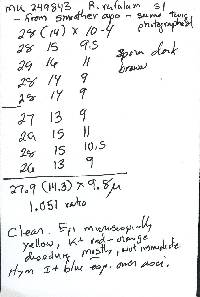 MU 249843 R. rufulam sl
- from smoother apo - same twig photographed
28 (14) x 10-4
28 15 9.5 spore dark
29 16 11 brown
28 14 9
28 14 9
27 13 9
29 15 11
28 15 10.5
26 13 9
27.9 (14.3) x 9.8µ
1.051 ratio
Clean. Epi microscopically
yellow, K+ red-orange
dissolving mostly, not immediate
Hym I+ blue esp. over asci.